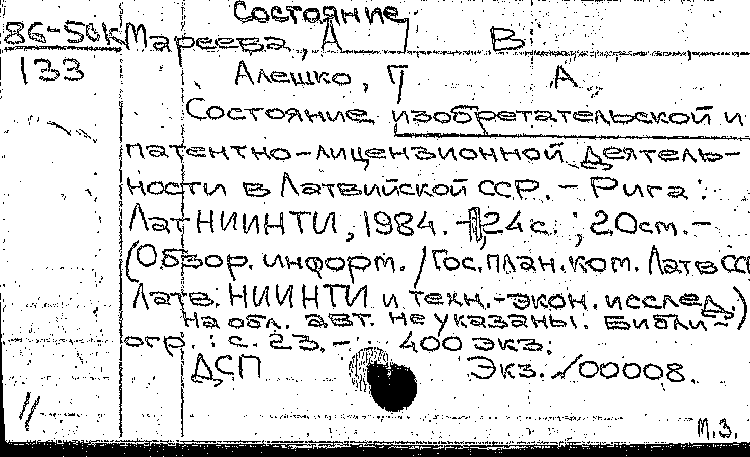 Состояние
86-50к Мареева, А В
133 Алешко, П А
Состояние изобретательской и
патентно-лицензионной деятель-
ности в Латвийской ССР. - Рига:
ЛатНИИНТИ, 1984. - 24 с. ; 20 см. -
(Обзор. информ. / Гос. план. ком. Латв ССР
Латв. НИИНТИ и техн.-экон. исслед.)
На обл. авт. не указаны. Библи-
огр. : с. 23. - 400 экз.
ДСП Экз. /00008.
11 М.З.